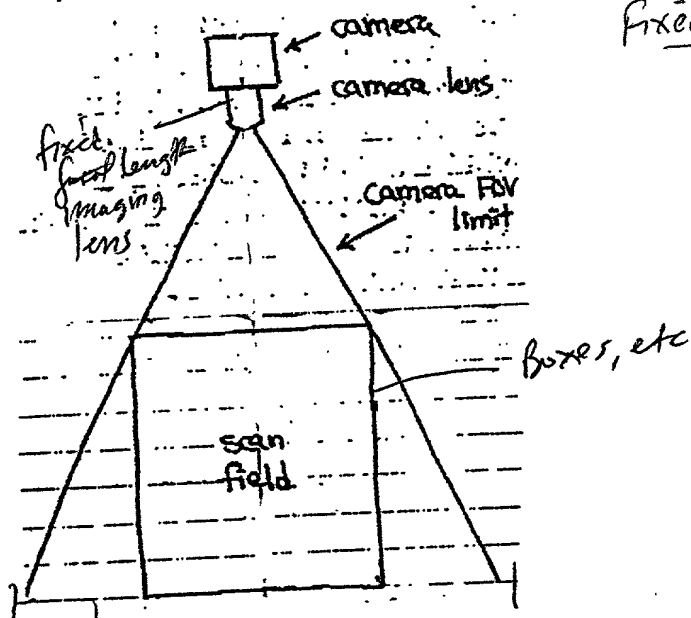 camera
Fixed
camera lens
fixed
focal length
imaging
lens
camera FOV
limit
Boxes, etc
scan
field